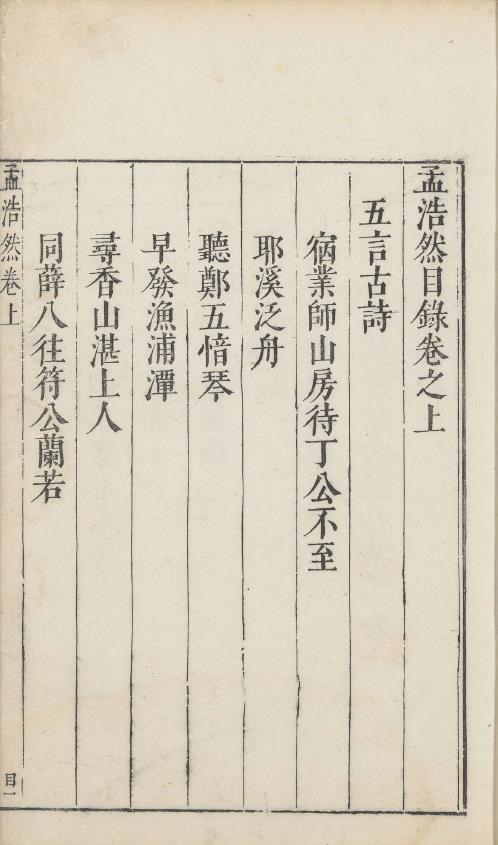 孟浩然目錄卷之上
五言古詩
宿業師山房待丁公不至
耶溪泛舟
聽鄭五愔琴
早發漁浦潭
尋香山湛上人
同薛八往符公蘭若
孟浩然卷上
目一